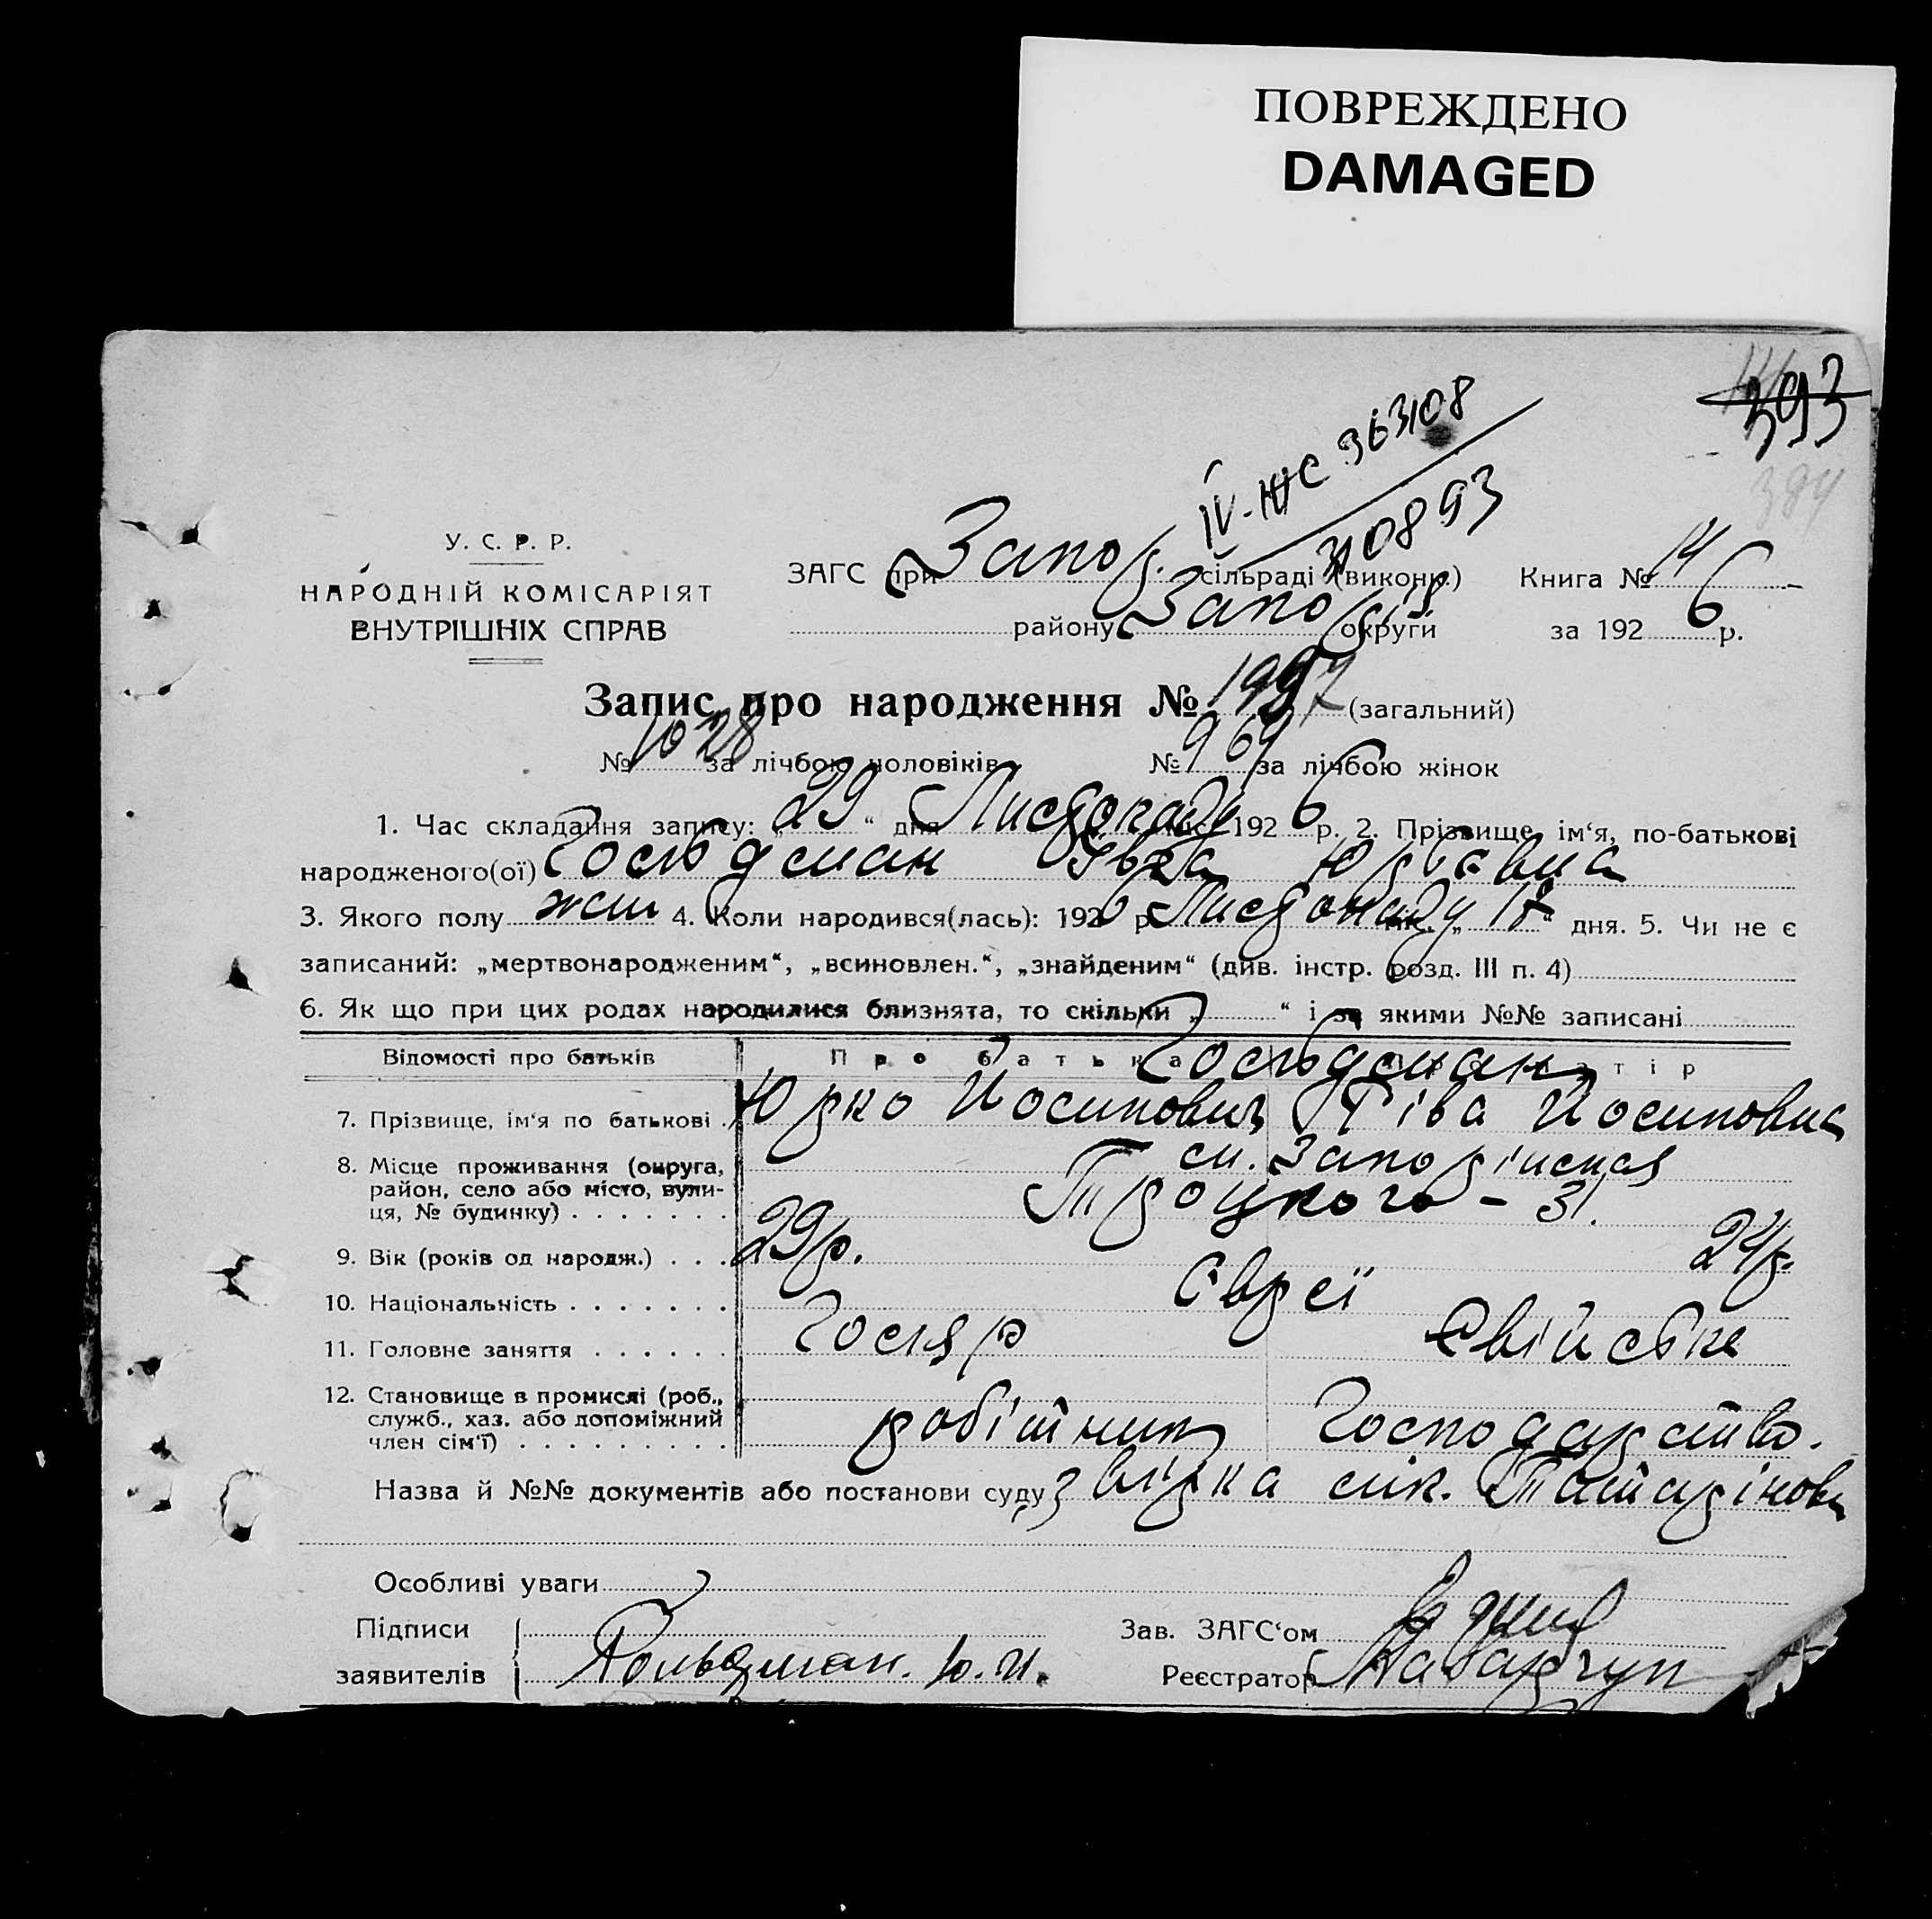 ПОВРЕЖДЕНО
DAMAGED
393
384
IV-ЖС 363108
310893
У. С. Р. Р.
НАРОДНІЙ КОМІСАРІЯТ
ВНУТРІШНІХ СПРАВ
ЗАГС при Запор. сільраді (виконк.) Книга № 14
району Запоріз округи за 1926 р.
Запис про народження № 1997 (загальний)
№ 1028 за лічбою чоловіків № 969 за лічбою жінок
1. Час складання запису: „29“ дня Листопаду міс. 1926 р. 2. Прізвище, ім‘я, по-батькові
народженого(ої) Гольдман Єва Юрʼєвна
3. Якого полу жін 4. Коли народився(лась): 1926 р. Листопаду міс. „17“ дня. 5. Чи не є
записаний: „мертвонародженим“, „всиновлен.“, „знайденим“ (див. інстр. розд. III п. 4)
6. Як що при цих родах народилися близнята, то скільки „ “ і за якими №№ записані
Відомості про батьків Про батька Про матір
Гольдман
7. Прізвище, ім‘я по батькові . Юрко Йосипович Ріва Йосиповна
8. Місце проживання (округа, район, село або місто, вули- ця, № будинку) . . . . . . . ст. Запоріжжя
Троцкого - 31.
9. Вік (років од народж.) . . . 29р. 24р.
10. Національність . . . . . . . Євреї
11. Головне заняття . . . . . . Госляр Свійське
12. Становище в промислі (роб., служб., хаз. або допоміжний член сім‘ї) . . . . . . . . . робітник господарство.
Назва й №№ документів або постанови суду звірка лік. Татарінова
Особливі уваги
Підписи Зав. ЗАГС‘ом
заявителів Гольдман. Ю. И. Реєстратор